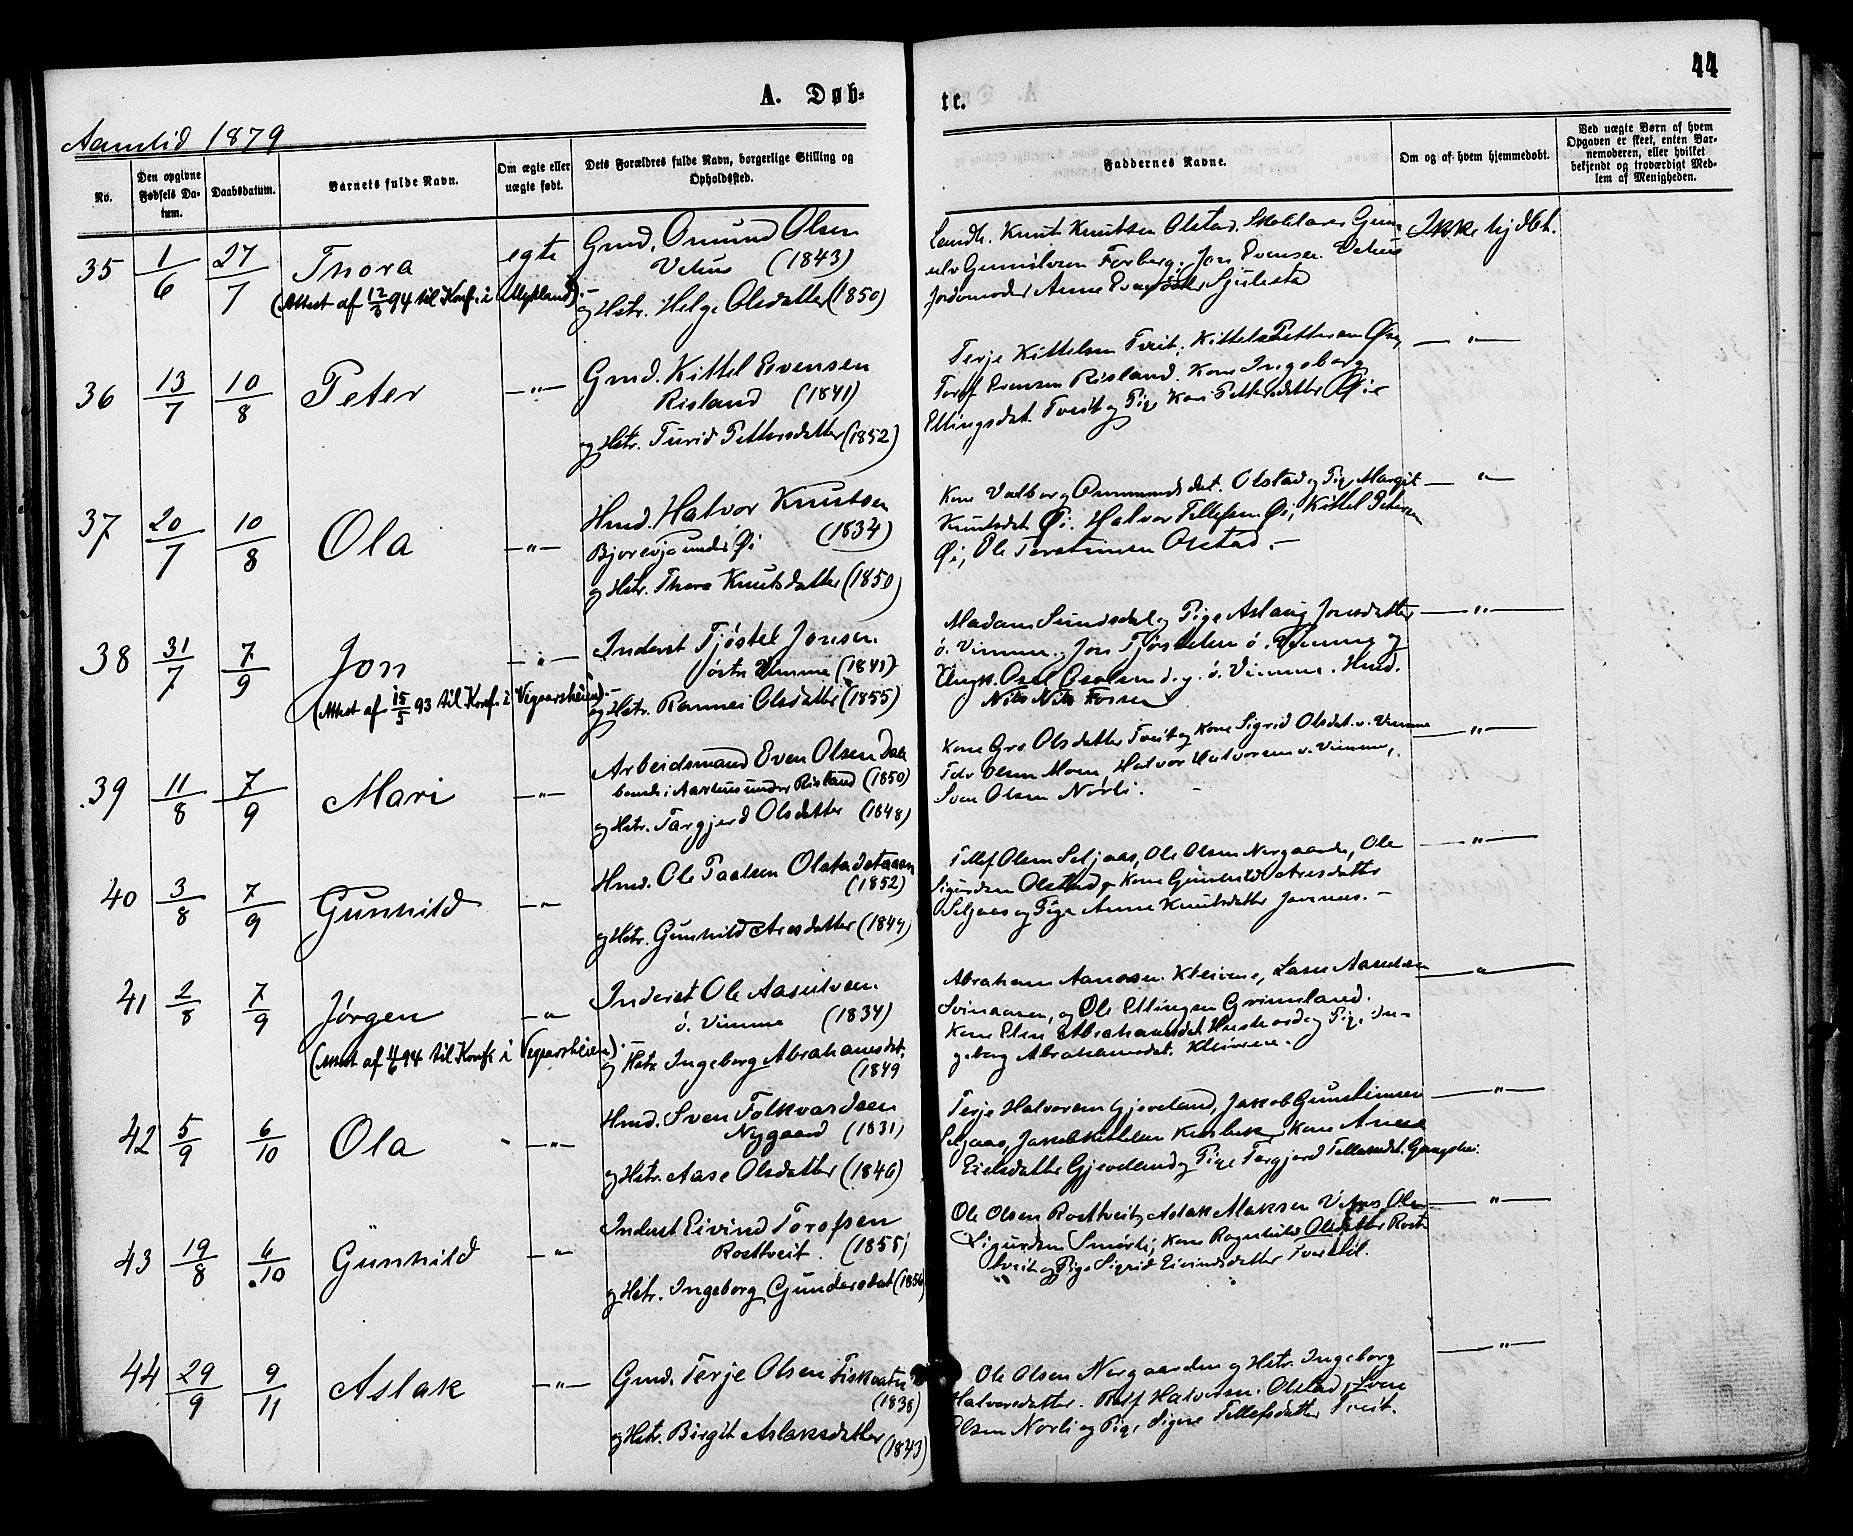 44
A. Døb=
te.
Aamlid 1879
No.
Den opgivne Fødsels Da-
tum.
Daabsdatum.
Barnets fulde Navn.
Om ægte eller
uægte født.
Dets Forældres fulde Navn, borgerlige Stilling og
Opholdssted.
Faddernes Navne.
Om og af hvem hjemmedøbt.
Ved uægte Børn af hvem
Opgaven er skeet, enten Bar-
nemoderen, eller hvilket
bekjendt og troværdigt Med-
lem af Menigheden.
35 1/6 27/7 Thora egte Gmd. Omund Olsen
Vehus (1843)
(Attest af 12/3 94 til Konf. i Mykland).-
og Hstr. Helge Olsdatter (1850)
Knut Knutsen Olstad.
Gunnilvsen Forberg, Jon Evensen Vehus
Jordemoder Anne
Ikke hj.døbt.
36 13/7 10/8 Peter —"— Gmd. Kittel Evensen
Risland (1841)
og Hstr. Turid Pettersdatter (1852)
Terje Kittelsen Tveit, Kittel Pettersen Øi,
Evensen Risland. Kone Ingeborg
Ellingsdat. Tveit og Pige Kari Pettersdatter Øi
—"—
37 20/7 10/8 Ola —"— Hmd. Halvor Knutsen
(1834)
under Øi
og Hstr. Thora Knutsdatter (1850)
Kone Valborg Ommundsdat. Olstad og Pige Margit
Knutsdat. Øi. Halvor Tellefsen Øi, Kittel Petersen
Øi, Ole Terstensen Olstad.-
—"—
38 31/7 7/9 Jon —"— Inderst Tjøstel Jonsen
Vimme (1841)
(Attest af 15/5 93 til Konf. i Vegaarsheien).-
og Hstr. Rannei Olsdatter (1855)
Madam Sundsdal og Pige Aslaug Jonsdatter
ö. Vimme. Jon Tjøstelsen ö. Vimme og
Ungk. Osol Osolsen d.y. ö. Vimme. Hmd.
Nils Nils Fossen
—"—
39 11/8 7/9 Mari —"— Arbeidsmand Even Olsen Dale
boende i Aashus under Risland (1850)
og Hstr. Targjerd Olsdatter (1848)
Kone Gro Olsdatter Tveit og Kone Sigrid Olsdat. v. Vimme
Olsen Moen, Halvor Halvorsen v. Vimme,
Sven Olsen Nørli.
—"—
40 3/8 7/9 Gunhild —"— Hmd. Ole Paalsen Olstadstaaen
(1852)
og Hstr. Gunhild Aresdatter (1849)
Tellef Olsen Seljaas, Ole Olsen Nørgaarden, Ole
Sigurdsen Olstad og Kone Gunhild Aresdatter
Seljaas og Pige Anne Knutsdatter Jovnnes.-
—"—
41 2/8 7/9 Jørgen —"— Inderst Ole Aasulvsen.
ö. Vimme (1834)
(Attest af 4/6 94 til Konf. i Vegaarsheien).-
og Hstr. Ingeborg Abrahamsdat.
(1849
Abraham Aanonsen Kleivene, Lars Aanonsen
og Ole Ellingsen Grimeland.
Kone Elen Abrahamsdat. og Pige In-
geborg Abrahamsdat. Kleivene.
—"—
42 5/9 6/10 Ola —"— Hmd. Sven Folkvardsen
Nygaard (1831)
og Hstr. Aase Olsdatter (1846)
Terje Halvorsen Gjeveland, Jakob Gunstensen
Seljaas, Jakob Kittelsen Kone Anne
Eielsdatter Gjeveland og Pige Targjerd Tellevsdat.
—"—
43 19/8 6/10 Gunhild —"— Inderst Eivind Torofsen
Rosttveit. (1855)
og Hstr. Ingeborg Gundersdat. (1856)
Ole Olsen Rosttveit, Aslak Aslaksen Vehus, Ole
Sigurdsen Smørli, Kone Ragnhild Olsdatter Rost-
tveit og Pige Sigrid Eivindsdatter Tveitstøl.
—"—
44 29/9 9/11 Aslak —"— Gmd. Terje Olsen Fiskvatn
(1838)
og Hstr. Birgit Aslaksdatter (1843)
Ole Olsen Nørgaarden og Hstr. Ingeborg
Halvorsdatter. Rolf Halvorsen Olstad, Sven
Olsen Nørli og Pige Signe Tellefsdatter Tveit.
—"—